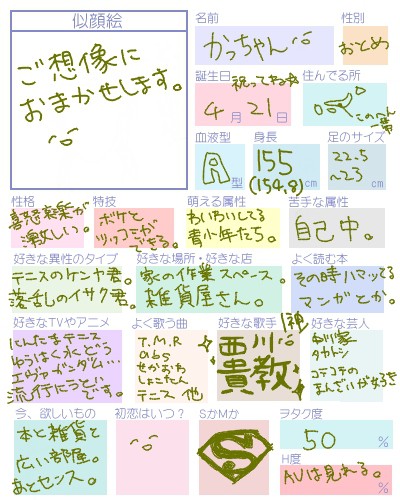 似顔絵
ご想像に
おまかせします。
名前
かっちゃん
性別
おとめ
誕生日
祝ってねっ
4月21日
住んでる所
このへん
血液型
A型
身長
155
(154.8)cm
足のサイズ
22.5
~23cm
性格
喜怒哀楽が
激しい。
特技
ボケと
ツッコミが
できる。
萌える属性
わいわいしてる
青少年たち。
苦手な属性
自己中。
好きな異性のタイプ
テニスのケンヤ君。
落乱のイサク君。
好きな場所・好きな店
家の作業スペース。
雑貨屋さん。
よく読む本
その時ハマッてる
マンガとか。
好きなTVやアニメ
にんたまテニス
ゆうはく氷どう
エヴァガンダム…
流行にうとい
です。
よく歌う曲
T.M.R
abs
せかおわ
しょこたん
テニス 他
好きな歌手
1神
西川
貴教
好きな芸人
中川家
タカトシ
コテコテの
まんざいが好き
今、欲しいもの
本と雑貨と
広い部屋。
あとセンス。
初恋はいつ?
SかMか
S
ヲタク度
50%
H度
AVは見れる。%